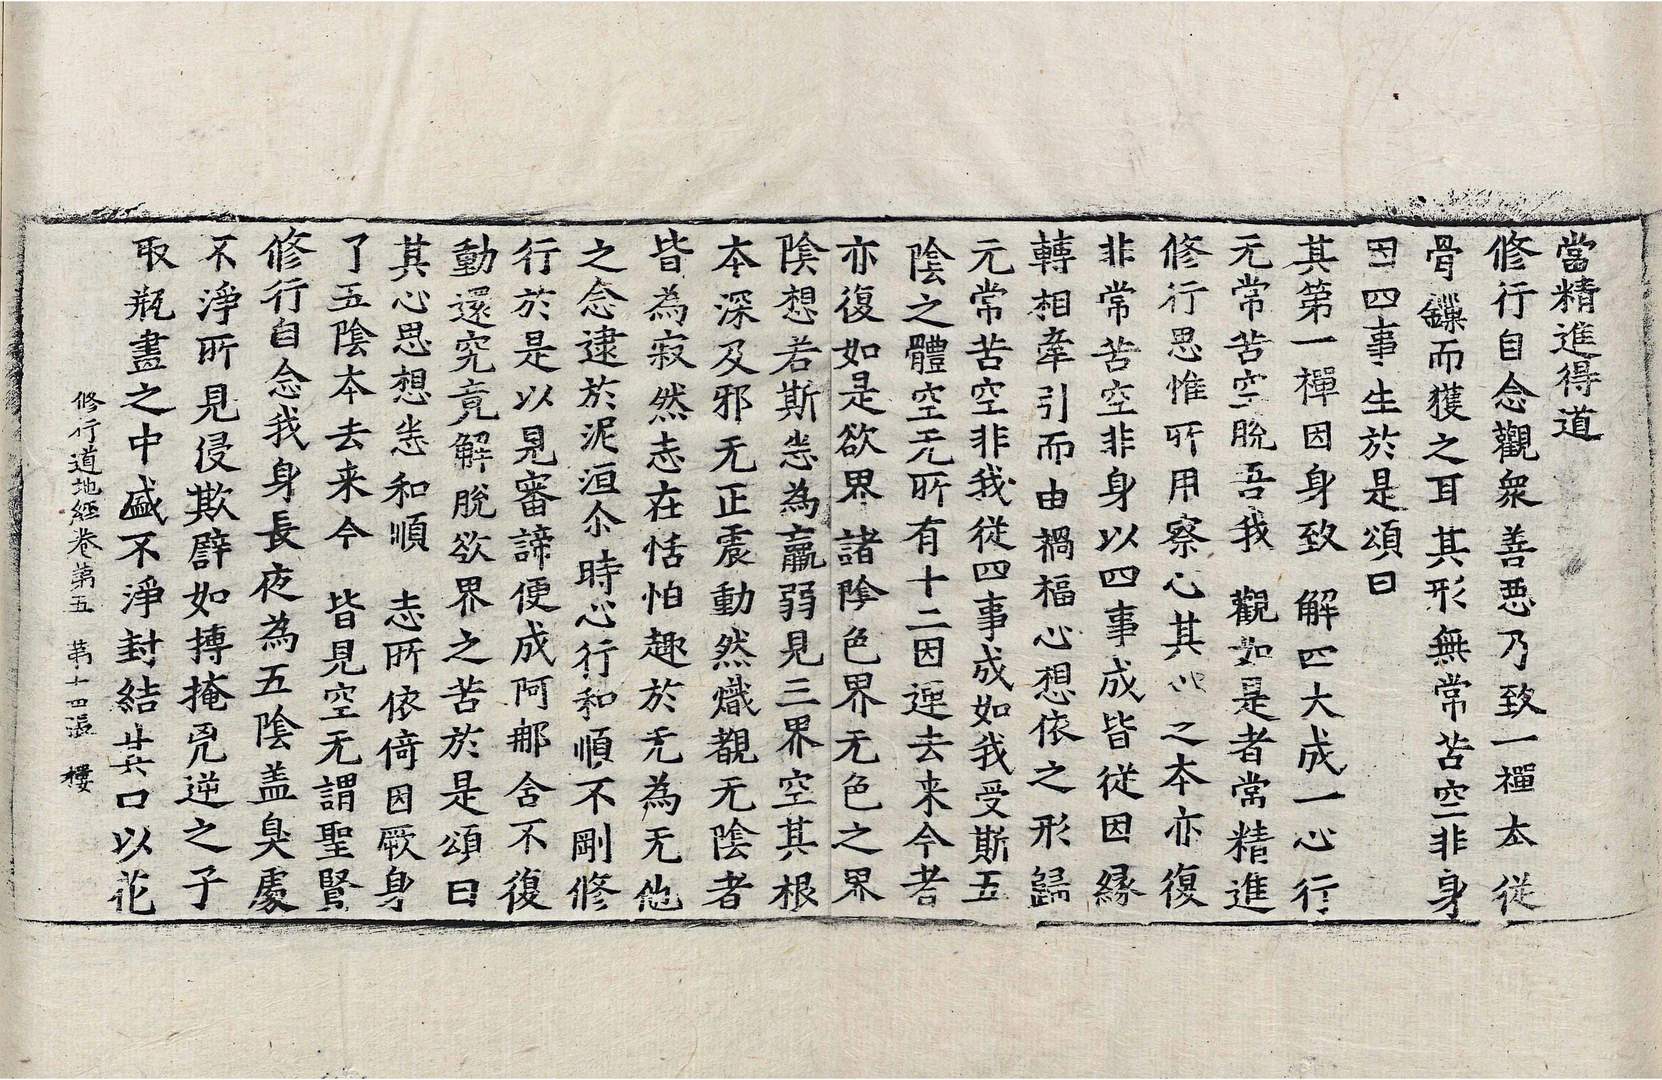 當精進得道
修行自念觀衆善惡乃致一禪本從
骨鏁而獲之耳其形無常苦空非身
因四事生於是頌曰
其第一禪因身致　解四大成一心行
无常苦空脫吾我　觀如是者常精進
修行思惟所用察心其心之本亦復
非常苦空非身以四事成皆從因緣
轉相牽引而由禍福心想依之形歸
无常苦空非我從四事成如我受斯五
陰之體空无所有十二因連去来今者
亦復如是欲界諸陰色界无色之界
陰想若斯悉為羸弱見三界空其根
本深及邪无正震動然熾覩无陰者
皆為寂然志在恬怕趣於无為无他
之念逮於泥洹尒時心行和順不剛修
行於是以見審諦便成阿那含不復
動還究竟解脫欲界之苦於是頌曰
其心思想悉和順　志所依倚因厥身
了五陰本去来今　皆見空无謂聖賢
修行自念我身長夜為五陰盖臭處
不淨所見侵欺譬如搏掩兇逆之子
取瓶畫之中盛不淨封結其口以花
修行道地經卷第五　第十四張　樓